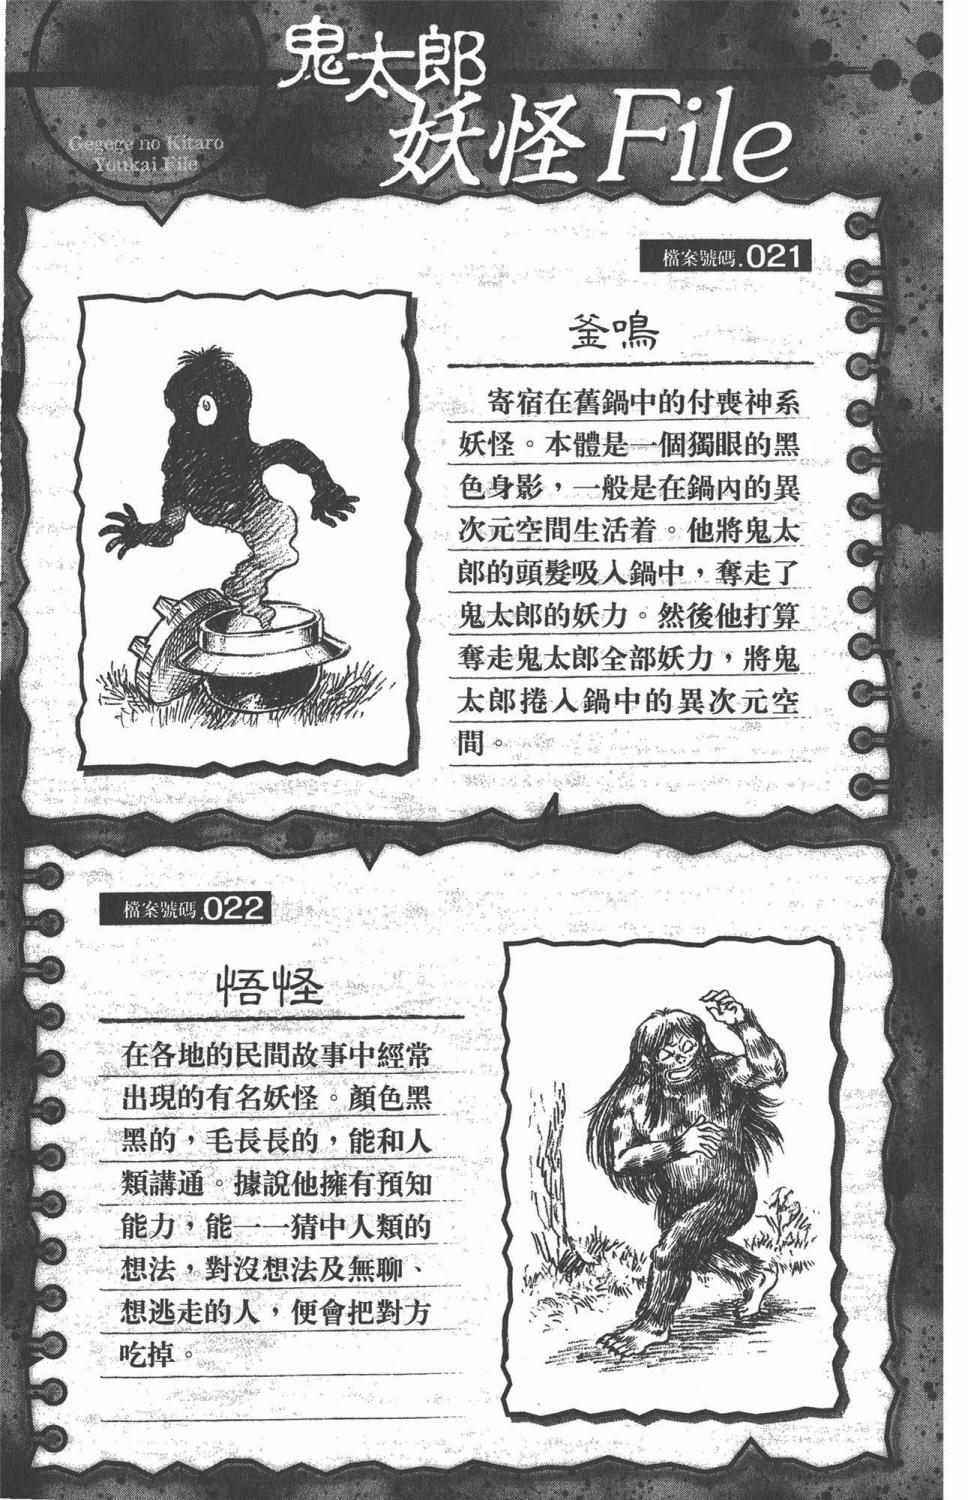 鬼太郎
妖怪File
Gegege no Kitaro
Youkai File
檔案號碼.021
釜鳴
寄宿在舊鍋中的付喪神系
妖怪。本體是一個獨眼的黑
色身影，一般是在鍋內的異
次元空間生活着。他將鬼太
郎的頭髮吸入鍋中，奪走了
鬼太郎的妖力。然後他打算
奪走鬼太郎全部妖力，將鬼
太郎捲入鍋中的異次元空
間。
檔案號碼.022
悟怪
在各地的民間故事中經常
出現的有名妖怪。顏色黑
黑的，毛長長的，能和人
類講通。據說他擁有預知
能力，能一一猜中人類的
想法，對沒想法及無聊、
想逃走的人，便會把對方
吃掉。